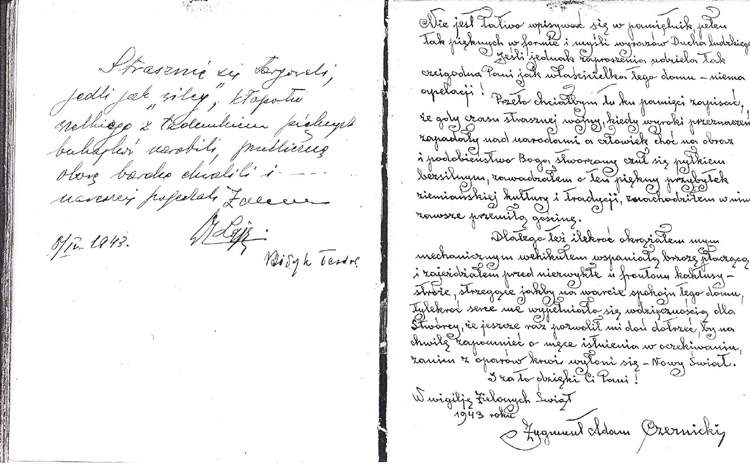 Strasznie się targowali,
jedli jak "wilcy", kłopotu
wielkiego z ładunkiem pięknych
buhajków narobili,
oborę bardzo chwalili i ----
nareszcie pojechali
8/IV. 1943.
Nie jest łatwo wpisywać się w pamiętnik pełen
tak pięknych w formie i myśli wyrazów Ducha ludzkiego.
Jeśli jednak zaproszenia udziela tak
czcigodna Pani jak właścicielka tego domu – niema
apelacji!
Przeto chciałbym tu ku pamięci zapisać,
że gdy czasu strasznej wojny, kiedy wyroki przeznaczeń
zapadały nad narodami a człowiek choć na obraz
i podobieństwo Boga stworzony czuł się pyłkiem
bezsilnym, zawadzałem o ten piękny przybytek
ziemiańskiej kultury i tradycji, znachodziłem w nim
zawsze przemiłą gościnę.
Dlatego też ilekroć okrążałem mym
mechanicznym wehikułem wspaniałą brzozę płaczącą
i zajeżdżałem przed niezwykłe u frontonu kaktusy –
stróże, strzegące jakby na warcie spokoju tego domu,
tylekroć serce me wypełniało się wdzięcznością dla
Stwórcy, że jeszcze raz pozwolił mi doń dotrzeć, by na
chwilę zapomnieć o męce istnienia w oczekiwaniu,
zanim z oparów krwi wyłoni się – Nowy Świat.
I za to dzięki Ci Pani!
W wigilję Zielonych Świąt
1943 roku
Zygmunt Adam Czernicki